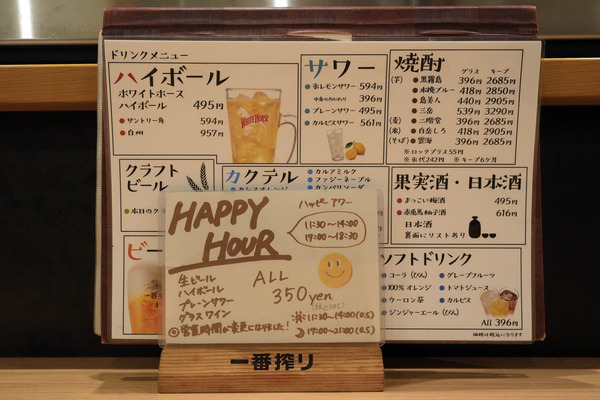 ドリンクメニュー
ハイボール
ホワイトホース
ハイボール 495円
サントリー角 594円
白州 957円
WHITE HORSE
サワー
氷レモンサワー 594円
中身のおかわり 396円
プレーンサワー 495円
カルピスサワー 561円
焼酎
グラス キープ
(芋) 黒霧島 396円 2685円
木挽ブルー 418円 2850円
島美人 440円 2905円
三岳 539円 3290円
(麦) 二階堂 396円 2685円
(米) 白岳しろ 418円 2685円
(そば) 雲海 396円 2685円
※ロックプラス55円
※氷代242円 ※キープ6ケ月
クラフト
ビール
本日のクラ
カクテル
カルアミルク
ファジーネーブル
カンパリソーダ
果実酒・日本酒
まっこい梅酒 495円
赤兎馬柚子酒 616円
日本酒
裏面にリストあり
ビー
ソフトドリンク
コーラ(びん)
グレープフルーツ
100%オレンジ
トマトジュース
ウーロン茶
カルピス
ジンジャーエール(びん)
All 396円
価格は税込になります
HAPPY
HOUR
ハッピーアワー
11:30〜14:00
17:00〜18:30
生ビール
ハイボール
プレーンサワー
グラスワイン
ALL
350yen
◎営業時間が変更になりました!
11:30〜14:00(O.S)
17:00〜21:00(O.S)
一番搾り